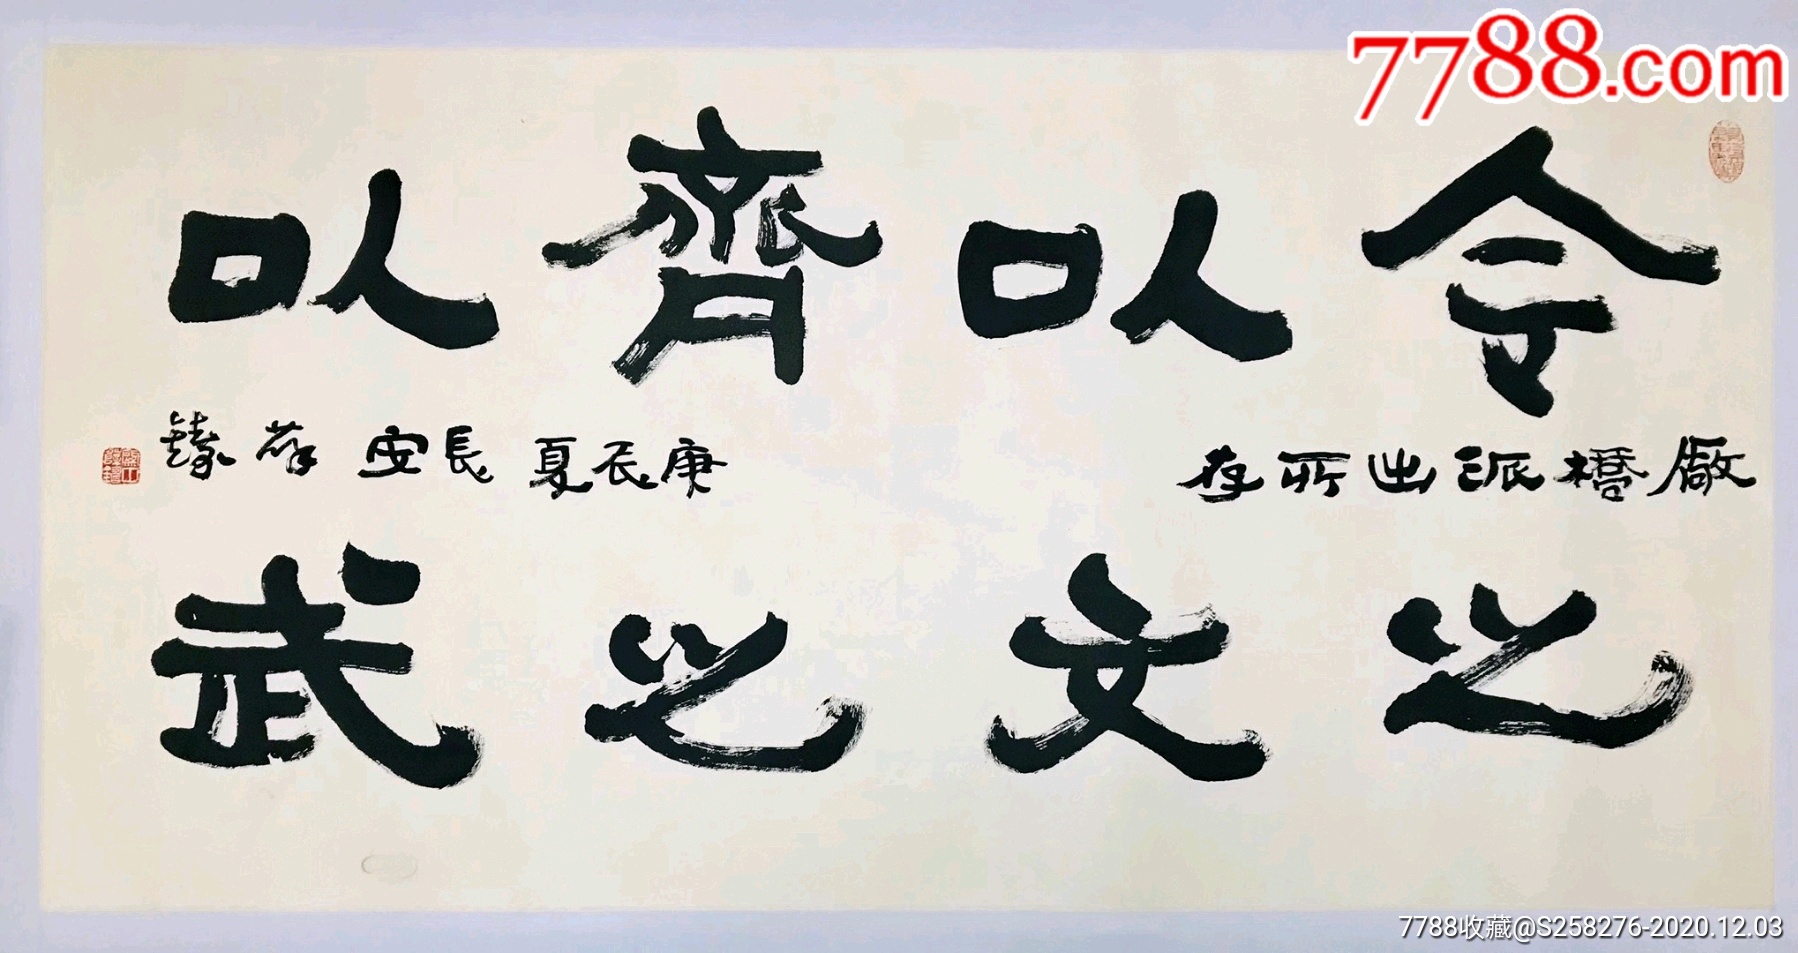 7788.com
令之
以文
齊之
以武
廠橋派出所存
庚辰夏長安薛鑄
7788收藏@S258276-2020.12.03